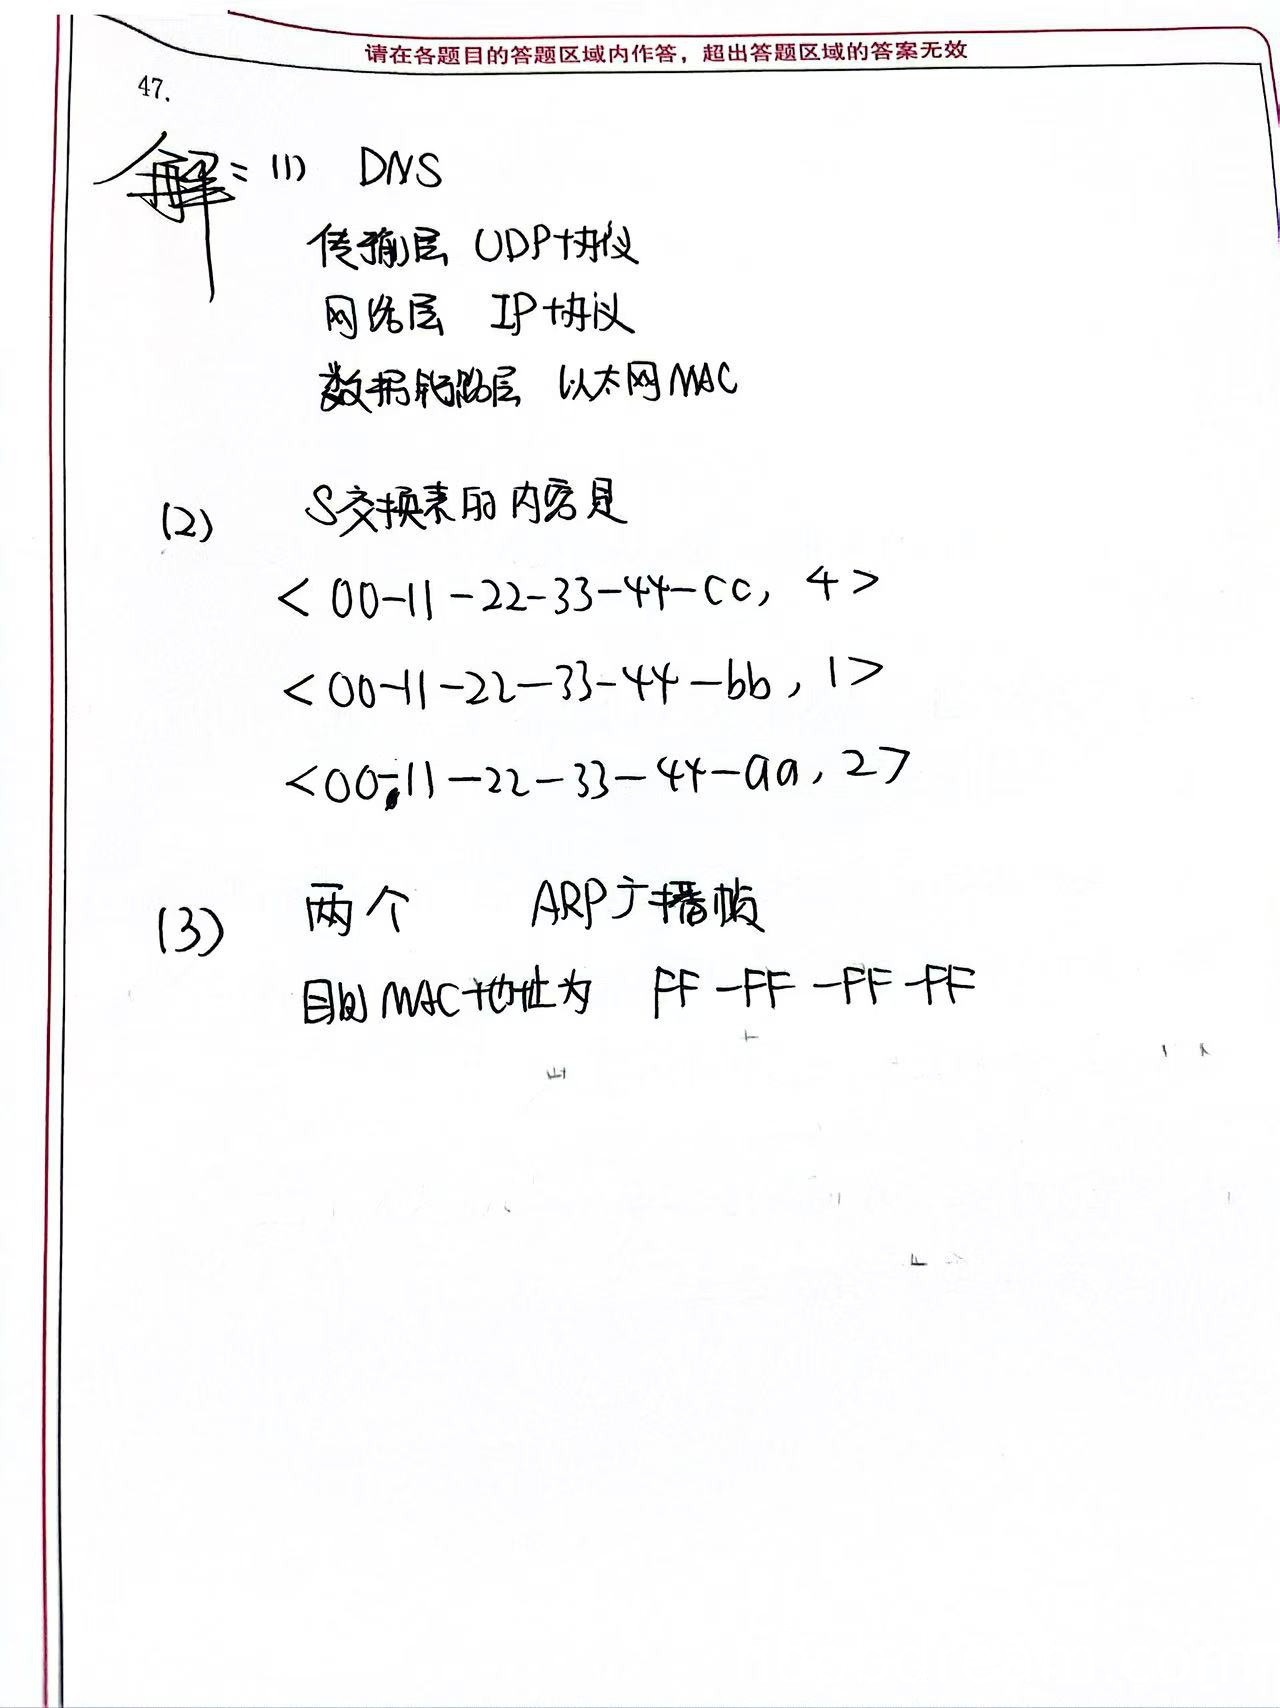 请在各题目的答题区域内作答，超出答题区域的答案无效
47.
解: (1) DNS
传输层 UDP协议
网络层 IP协议
数据链路层 以太网MAC
(2) S交换表的内容是
<00-11-22-33-44-cc, 4>
<00-11-22-33-44-bb, 1>
<00-11-22-33-44-aa, 2>
(3) 两个 ARP广播帧
目的MAC地址为 FF-FF-FF-FF